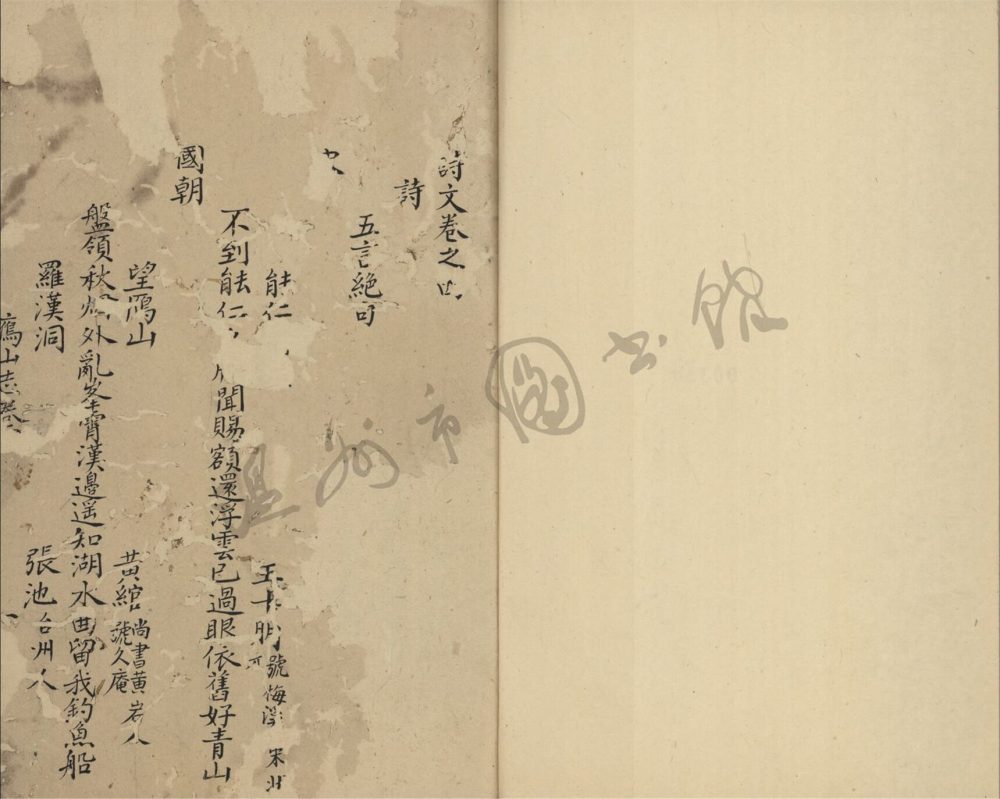 詩文卷之
詩
五言絕句
能仁
王十朋 號梅溪 宋
不到能仁 聞賜額還浮雲已過眼依舊好青山
國朝
望鴈山
黃綰 尚書黃岩人號久庵
盤領秋 外亂峯霄漢邊遥知湖水曲留我釣魚船
羅漢洞
張池 台州人
鴈山志卷
溫州市圖书館